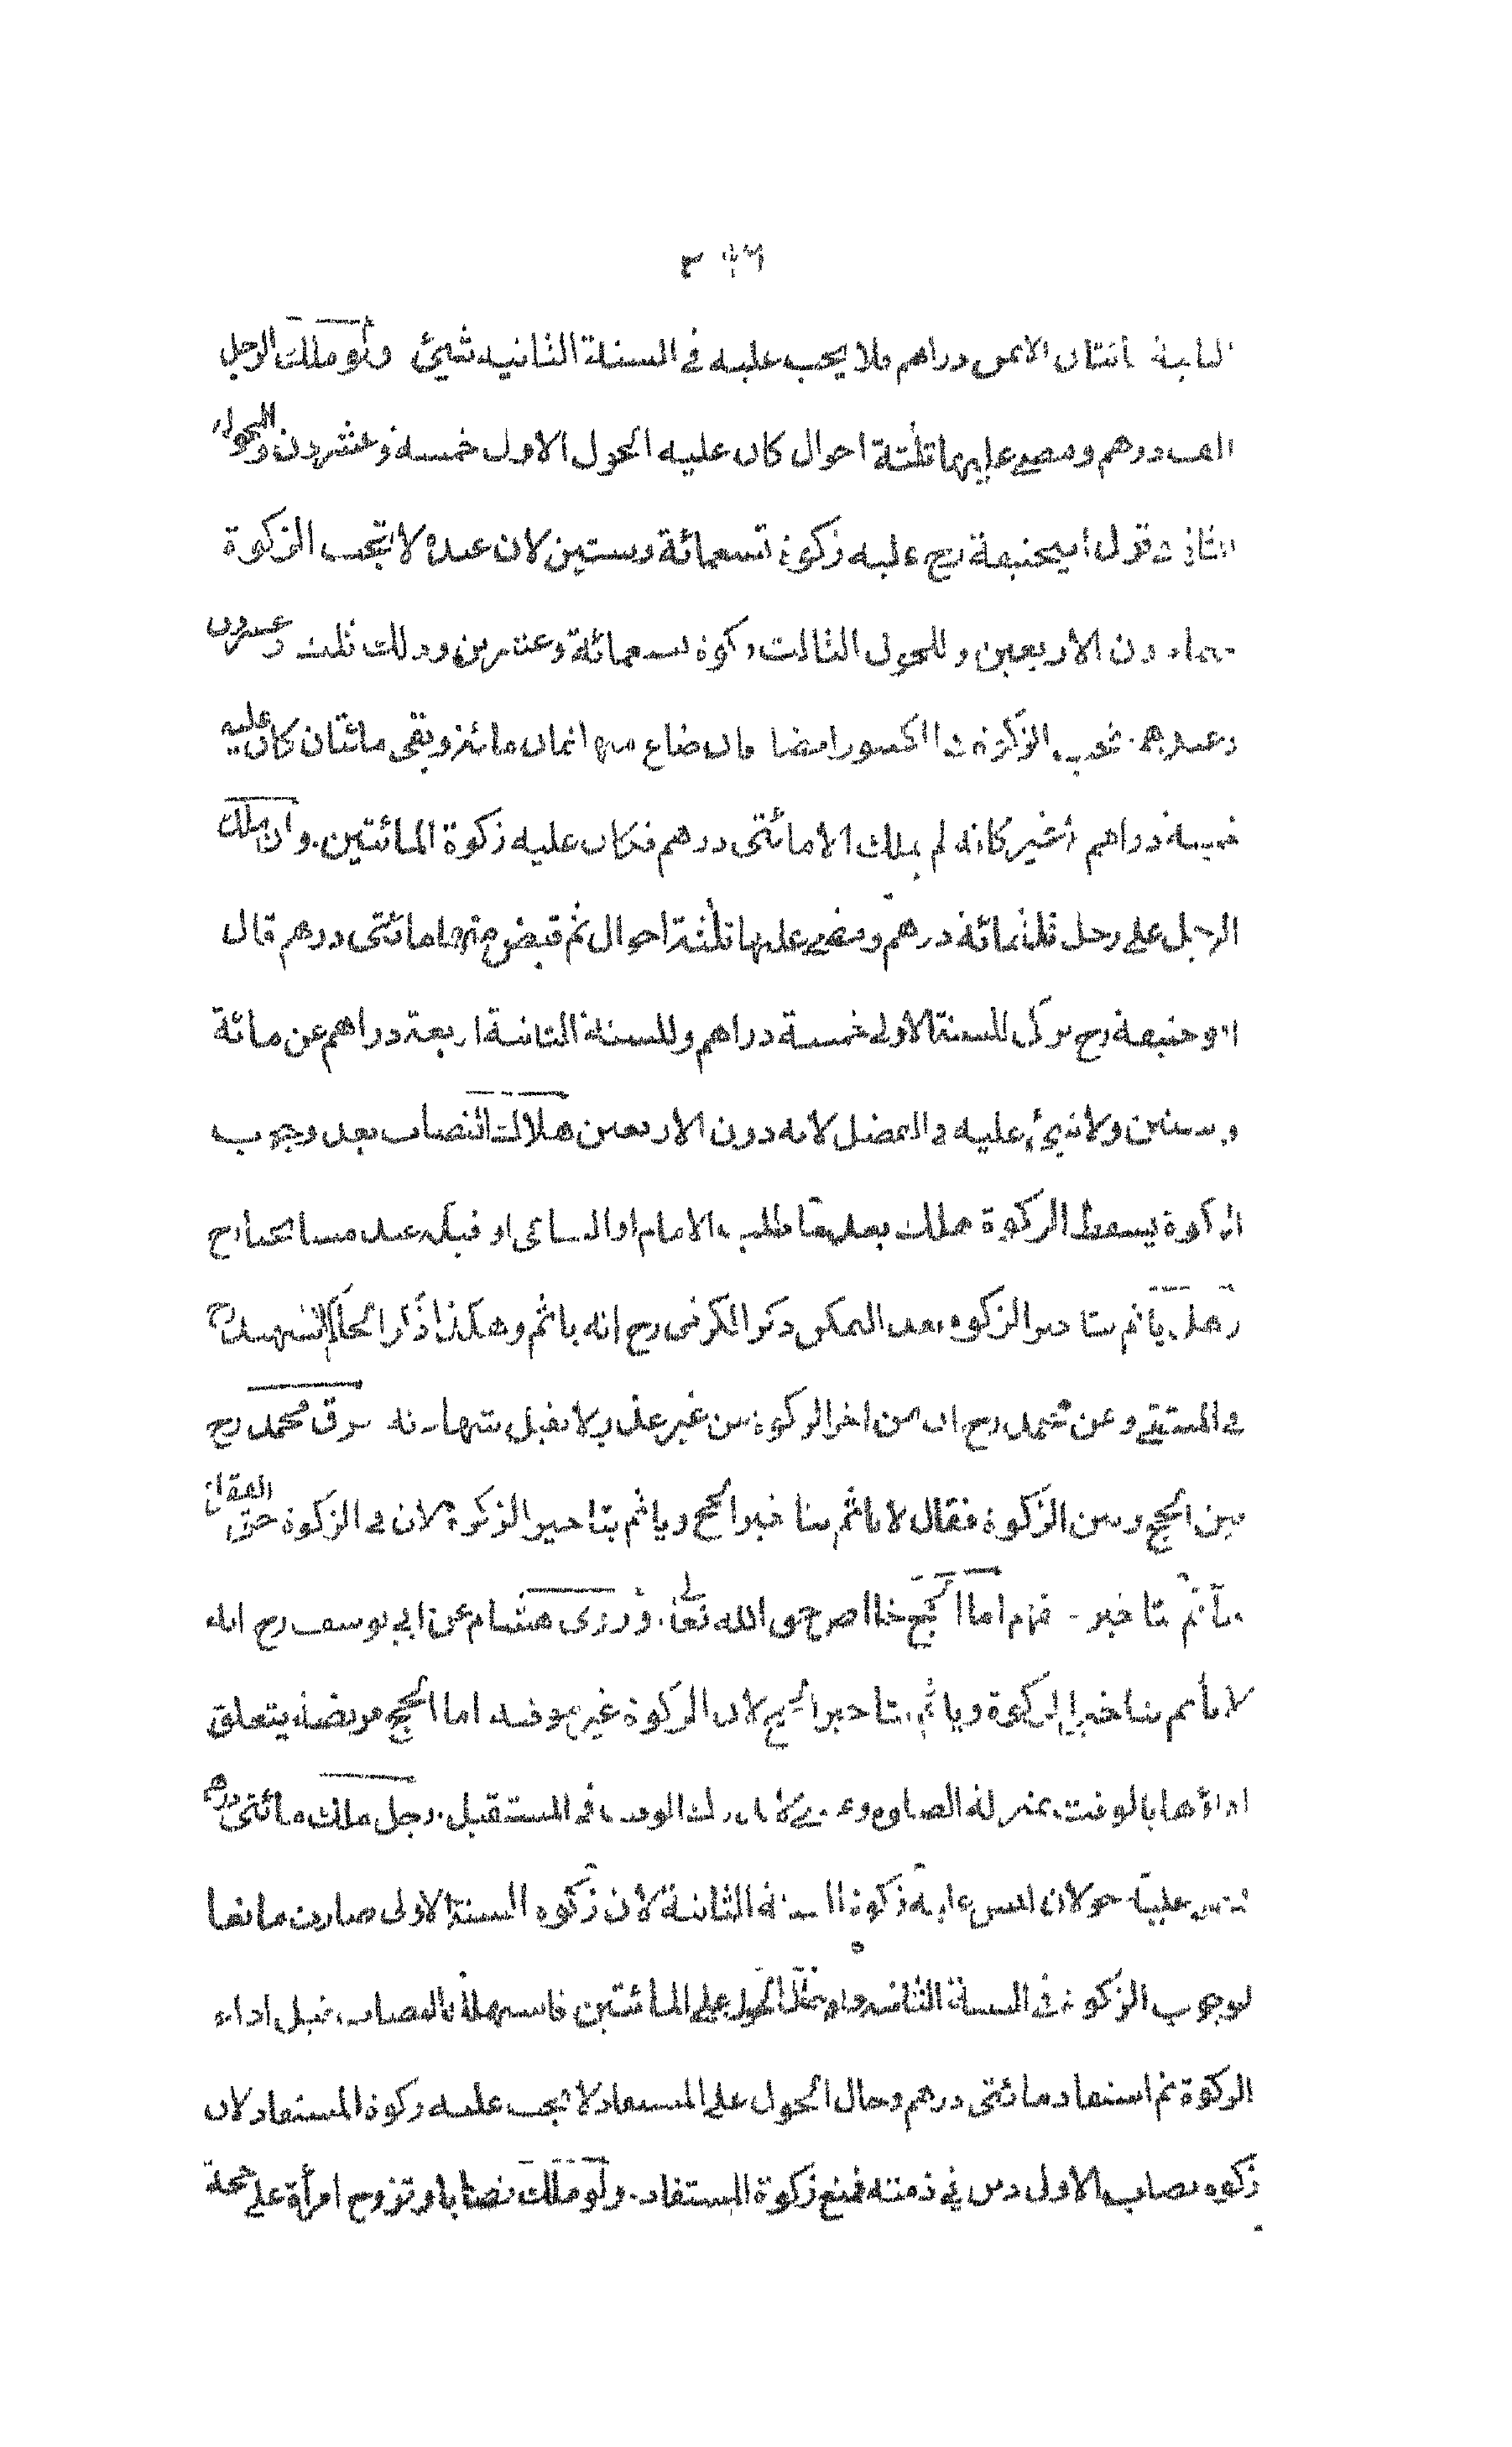 مائتان الا خمس دراهم فلا يجب عليه فى السنة الثانيه شيئ ولو ملك الرجل
الف درهم ومضى عليها ثلثة احوال كان عليه للحول الاول خمسة وعشرون وللحول
الثانى فى قول ابيحنيفة رح عليه زكوة تسعمائة وستين لان عنده لا تجب الزكوة
فيما دون الاربعين وللحول الثالث زكوة تسعمائة وعشرين وذلك ثلث وعشرون
وعندهما تجب الزكوة فى الكسور ايضا فان ضاع منها ثمان مائة وبقى مائتان كان عليه
خمسة دراهم لاغير كانه لم يملك الا مائتى درهم فكان عليه زكوة المائتين. وان ملك
الرجل على رجل ثلثمائة درهم ومضى عليها ثلثة احوال ثم قبض منها مائتى درهم قال
ابو حنيفة رح يزكى للسنة الاولى خمسة دراهم وللسنة الثانية اربعة دراهم عن مائة
وستين ولا شيئ عليه فى الفضل لانه دون الاربعين هلاك النصاب بعد وجوب
الزكوة يسقط الزكوة هلك بعد ما طلب الامام او الساعى او قبله عند مشايخنا رح
وهل ياثم بتاخير الزكوة بعد التمكن ذكر الكرخى رح انه ياثم وهكذا ذكر الحاكم الشهيد رح
فى المنتقى وعن محمد رح ان من اخر الزكوة من غير عذر لا تقبل شهادته فرق محمد رح
بين الحج وبين الزكوة فقال لا ياثم بتاخير الحج وياثم بتاخير الزكوة لان فى الزكوة حق الفقراء
فيأثم بتاخير حقهم اما الحج خالصا حق الله تعا. وروى هشام عن ابى يوسف رح انه
لا يأثم بتاخير الزكوة وياثم بتاخير الحج لان الزكوة غير موقتة اما الحج فريضة يتعلق
اداؤها بالوقت بمنزلة الصلوة وعسى لا يدرك الوقت فى المستقبل. رجل ملك مائتى درهم
فمضى عليه حولان ليس عليه زكوة السنة الثانية لان زكوة السنة الاولى صارت مانعا
لوجوب الزكوة فى السنة الثانية ولو حال الحول على المائتين فاستهلك النصاب قبل اداء
الزكوة ثم استفاد مائتى درهم وحال الحول على المستفاد لا تجب عليه زكوة المستفاد لان
زكوة نصاب الاول دين فى ذمته فمنع زكوة المستفاد. ولو ملك نصابا وتزوج امرأة على